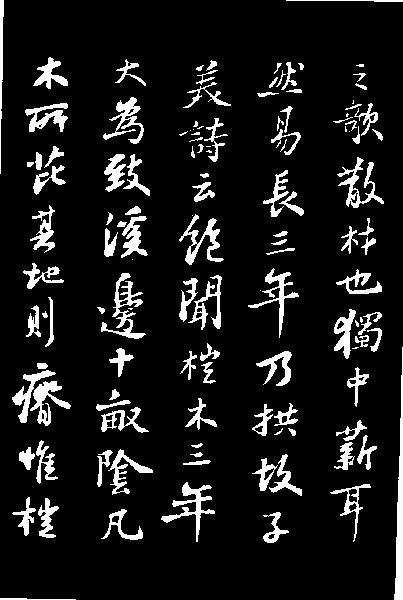 之歌散材也獨中薪耳
然易長三年乃拱故子
美詩云飽聞榿木三年
大為致溪邊十畝陰凡
木所芘其地則瘠惟榿